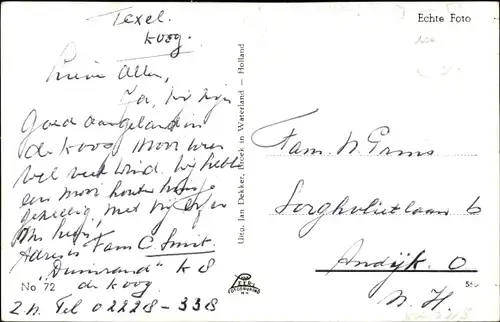 Texel.
Koog.
Lieve Allen,
Ja, wij zijn
goed aangeland in
de Koog. Mooi weer
wel veel wind. Wij hebben
een mooi houten huisje
gezellig, met
Adres: Fam C. Smit.
"Duinrand" K 8
No 72 de Koog
Z.H. Tel 02228-338
Uitg. Jan Dekker, Broek in Waterland — Holland
Echte Foto
Fam. N. Prins
Sorghvlietlaan 6
Andijk. O
N. H.